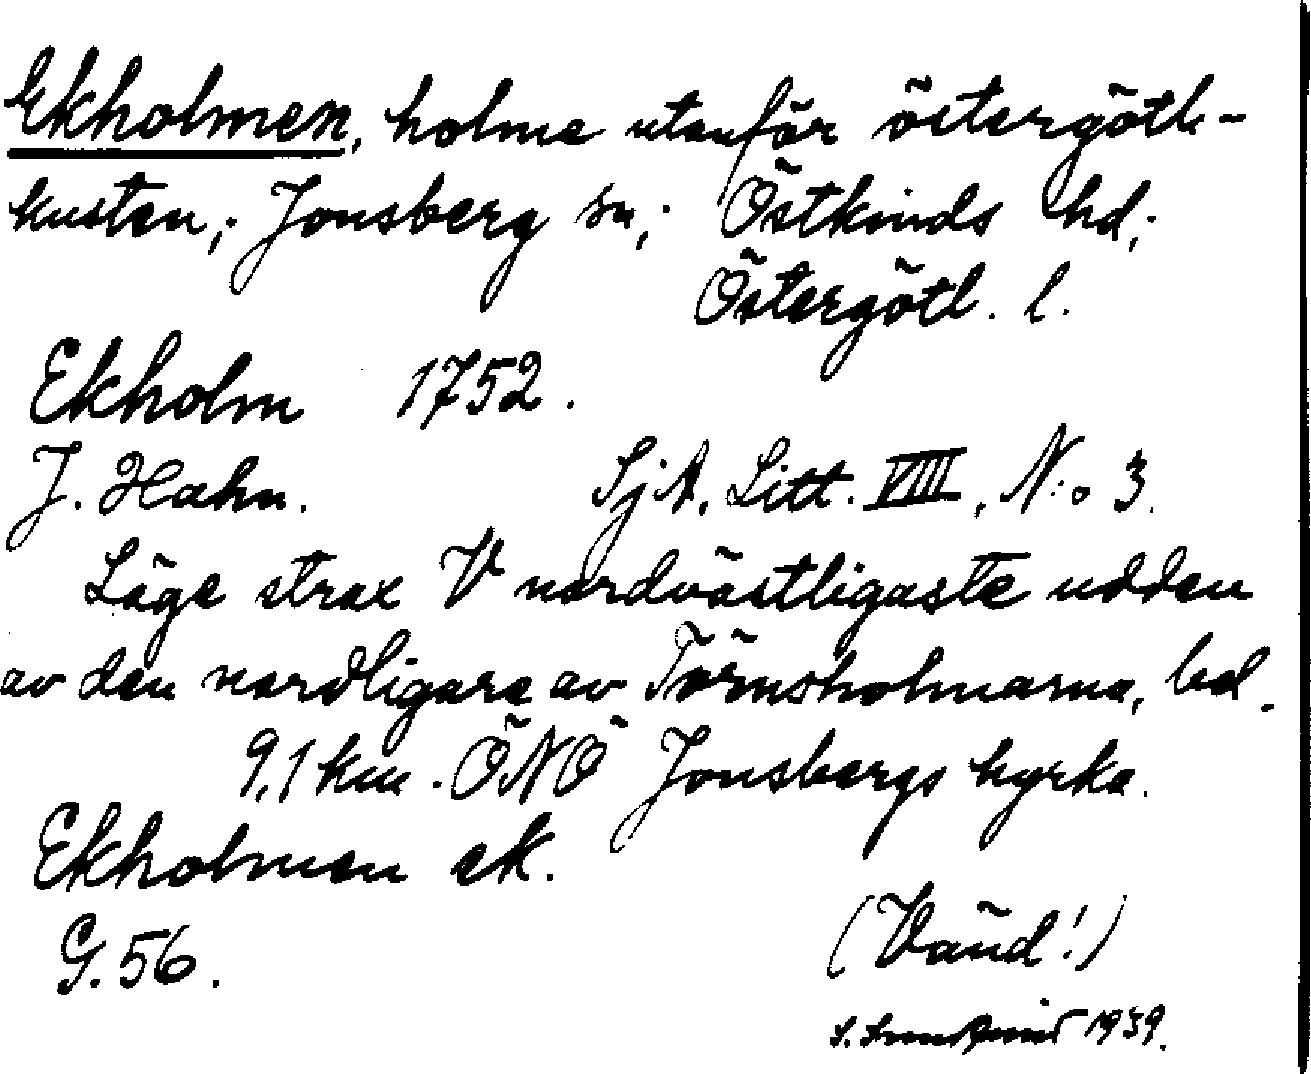 Ekholmen, holme utanför östergötl-
kusten; Jonsberg sn; Östkinds hd;
Östergötl. l.
Ekholm 1752.
J. Hahn. SjA, Litt. VIII, N:o 3.
Läge strax V nordvästligaste udden
av den nordligare av Törnsholmarna, bel.
9,1 km. ÖNÖ Jonsbergs kyrka.
Ekholmen ek.
G. 56.
(Vänd!)
S. 1939.